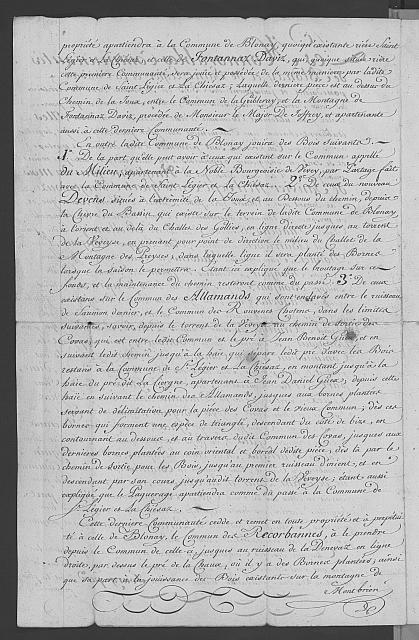 propriété, apartiendra à la Commune de Blonay, quoyque existante rière Saint
Légier et La Chiesaz, et celle de Fontannaz Daviz, qui, quoyque située rière
cette première Communauté, sera jouïe et possedée, de la même manière, par ladite
Commune de Saint Légier et La Chiesaz; Laquelle dernière pièce est au dessus du
Chemin de la Joux, entre le Commun de la et la Montagne de
Fontannaz Daviz, possedée de Monsieur le Major De Joffrey, et apartenante
aussi à cette dernière Communauté.
En outre ladite Commune de Blonay jouira des Bois suivants.
1°. De la part qu'elle peut avoir à ceux qui existent sur le Commun appellé
du Milieu, apartenant à la Noble Bourgeoisie de Vevey, par Partage fait
avec la Commune de Saint Légier et La Chiesaz. 2°. De ceux du nouveau
Devens, situés à l'extrêmité de la Joux, et au Dessous du chemin, depuis
la Chivre du Bassin qui existe sur le terrein de ladite Commune de Blonay,
à l'orient et au delà du Challet des Gollies, en ligne directe jusques au torrent
de la Veveyse, en prenant pour point de direction le milieu du challet de la
Montagne des Preyses, dans laquelle ligne il sera planté des Bornes
lorsque la saison le permettra. Etant ici expliqué que le broutage sur ces
fonds, et la maintenance du chemin resteront comme du passé. 3°. De ceux
existans sur le Commun des Allamands, qui sont enclavés entre le ruisseau
de Saumon dernier, et le Commun des dans les limites
suivantes, savoir, depuis le torrent de la Veveyse au chemin de Sortie des
Covas, qui est entre ledit Commun et le pré à Jean Benoit et en
suivant ledit chemin jusqu'à la haie, qui sépare ledit pré d'avec les Bois
restans à la Commune de St. Légier et La Chiesaz, en montant jusqu'à la
haie du pré dit La Ciergne, apartenans à Jean Daniel depuis cette
haie en suivant le chemin des Allamands, jusques aux bornes plantées
servant de délimitation pour la pièce des Covas et le vieux Commun; dès ces
bornes qui forment une espèce de triangle, descendant du côté de bize, en
contournant au dessous, et au travers dudit Commun des Covas, jusques aux
dernières bornes plantées au coin oriental et boréal dédite pièce; dès là par le
chemin de Sortie, pour les Bois, jusqu'au premier ruisseau d'orient, et en
descendant par son cours jusqu'audit torrent de la Veveyse; étant aussi
expliqué que le Paquerage apartiendra comme du passé à la Commune de
St. Légier et La Chiesaz.
Cette dernière Communauté cède et remet en toute propriété et à perpétuité
à celle de Blonay, le Commun des Recorbannes, à le prendre
depuis le Commun de celle-ci jusques au ruisseau de la Deneyaz en ligne
droite, par dessus le pré de la Chaux, où il y a des Bornes plantées; ainsi
que sa part à la jouissance des Bois existants sur la montagne de
Montbrion